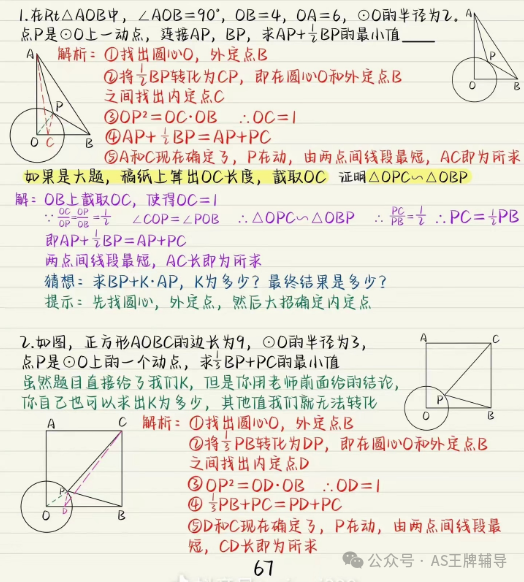 1.在Rt△AOB中，∠AOB=90°，OB=4，OA=6，⊙O的半径为2.
点P是⊙O上一动点，连接AP，BP，求AP+½BP的最小值____
解析：①找出圆心O，外定点B
②将½BP转化为CP，即在圆心O和外定点B
之间找出内定点C
③OP²=OC·OB ∴OC=1
④AP+½BP=AP+PC
⑤A和C现在确定了，P在动，由两点间线段最短，AC即为所求
A
P
O
C
B
A
P
O
B
如果是大题，稿纸上算出OC长度，截取OC 证明△OPC∽△OBP
解：OB上截取OC，使得OC=1
∵OC/OP=OP/OB=½ ∠COP=∠POB ∴△OPC∽△OBP ∴PC/PB=½ ∴PC=½PB
即AP+½BP=AP+PC
两点间线段最短，AC长即为所求
猜想：求BP+K·AP，K为多少？最终结果是多少？
提示：先找圆心，外定点，然后大招确定内定点
2.如图，正方形AOBC的边长为9，⊙O的半径为3，
点P是⊙O上的一个动点，求⅓BP+PC的最小值
虽然题目直接给了我们K，但是你用老师前面给的结论，
你自己也可以求出K为多少，其他值我们就无法转化
A
C
P
O
B
解析：①找出圆心O，外定点B
②将⅓PB转化为DP，即在圆心O和外定点B
之间找出内定点D
③OP²=OD·OB ∴OD=1
④⅓PB+PC=PD+PC
⑤D和C现在确定了，P在动，由两点间线段最
短，CD长即为所求
A
C
P
O
D
B
67
公众号·AS王牌辅导